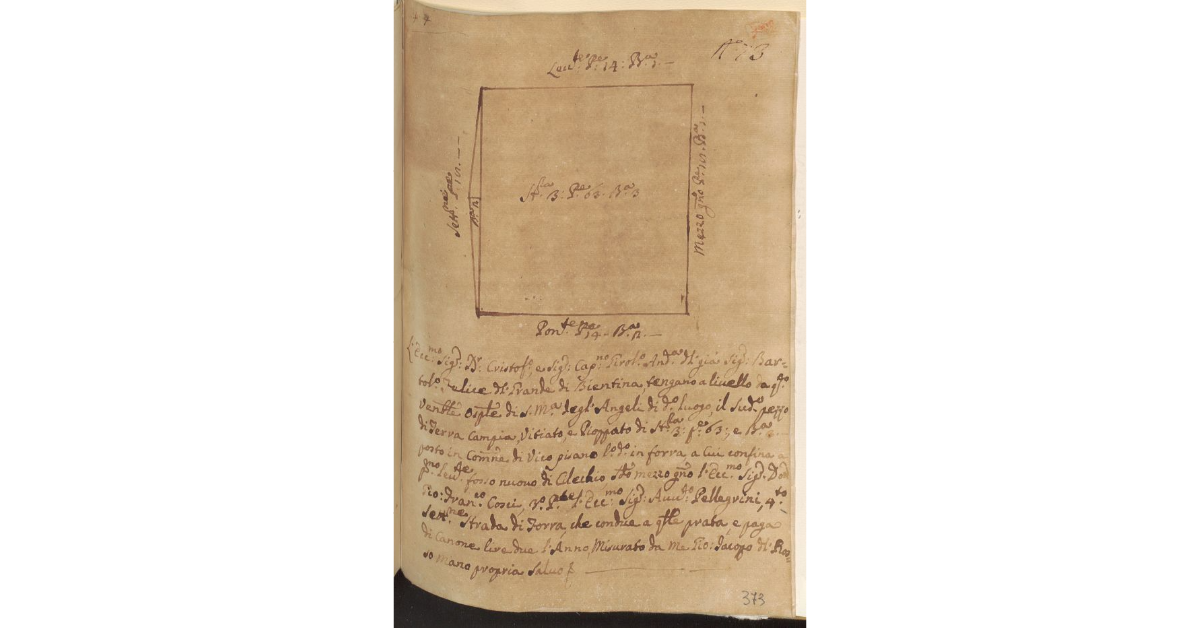 N.º 73
Lev.te P.e 14: B.a 1.—
Sett.ne P.e 15. — —
B.a 2
St.a 3: P.e 63: B.a 3
Mezzo gno P.e 15. B.a 3.—
Pon.te P.e 14 - B.a 2.—
L'Ecc.mo Sig.r D.r Cristof.o, e Sig.r Cap.no Girol.o And.a d'l già Sig.r Bar-
tol.o Felice d'l Grande di Bientina tengano a livello da q.sto
Venble Osple di S. M.a degl'Angeli di d.o luogo, il Sud.o pezzo
di Terra Campia, Vitiato, e Pioppato di St.a 3: p.e 63:, e B.a
posto in Com.ne di Vico pisano l.o d.o in forra a Cui confina a
p.mo Lev.te fosso nuovo di Cilecchio 2.do mezzo gno l'Ecc.mo Sig.r D.r
Gio: Fran.co Cosci, 3.o P.te l'Ecc.mo Sig.r Avv.to Pellegrini, 4.to
Sett.ne Strada di Forra, che conduce a q.lle prata, e paga
di Canone lire due l'Anno, Misurato da me Gio: Jacopo d'l Ros-
so mano propria Salvo &
373